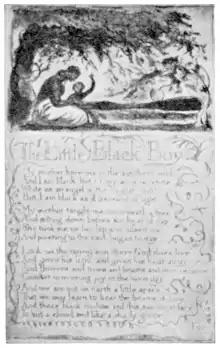 The Little Black Boy
My mother bore me in the southern wild
And I am black, but O my soul is white
White as an angel is the English child
But I am black as if bereav'd of light
My mother taught me underneath a tree
And sitting down before the heat of day
She took me on her lap and kissed me
And pointing to the east began to say
Look on the rising sun: there God does live
And gives his light, and gives his heat away
And flowers and trees and beasts and men receive
Comfort in morning joy in the noon day
And we are put on earth a little space
That we may learn to bear the beams of love
And these black bodies and this sun-burnt face
Is but a cloud, and like a shady grove